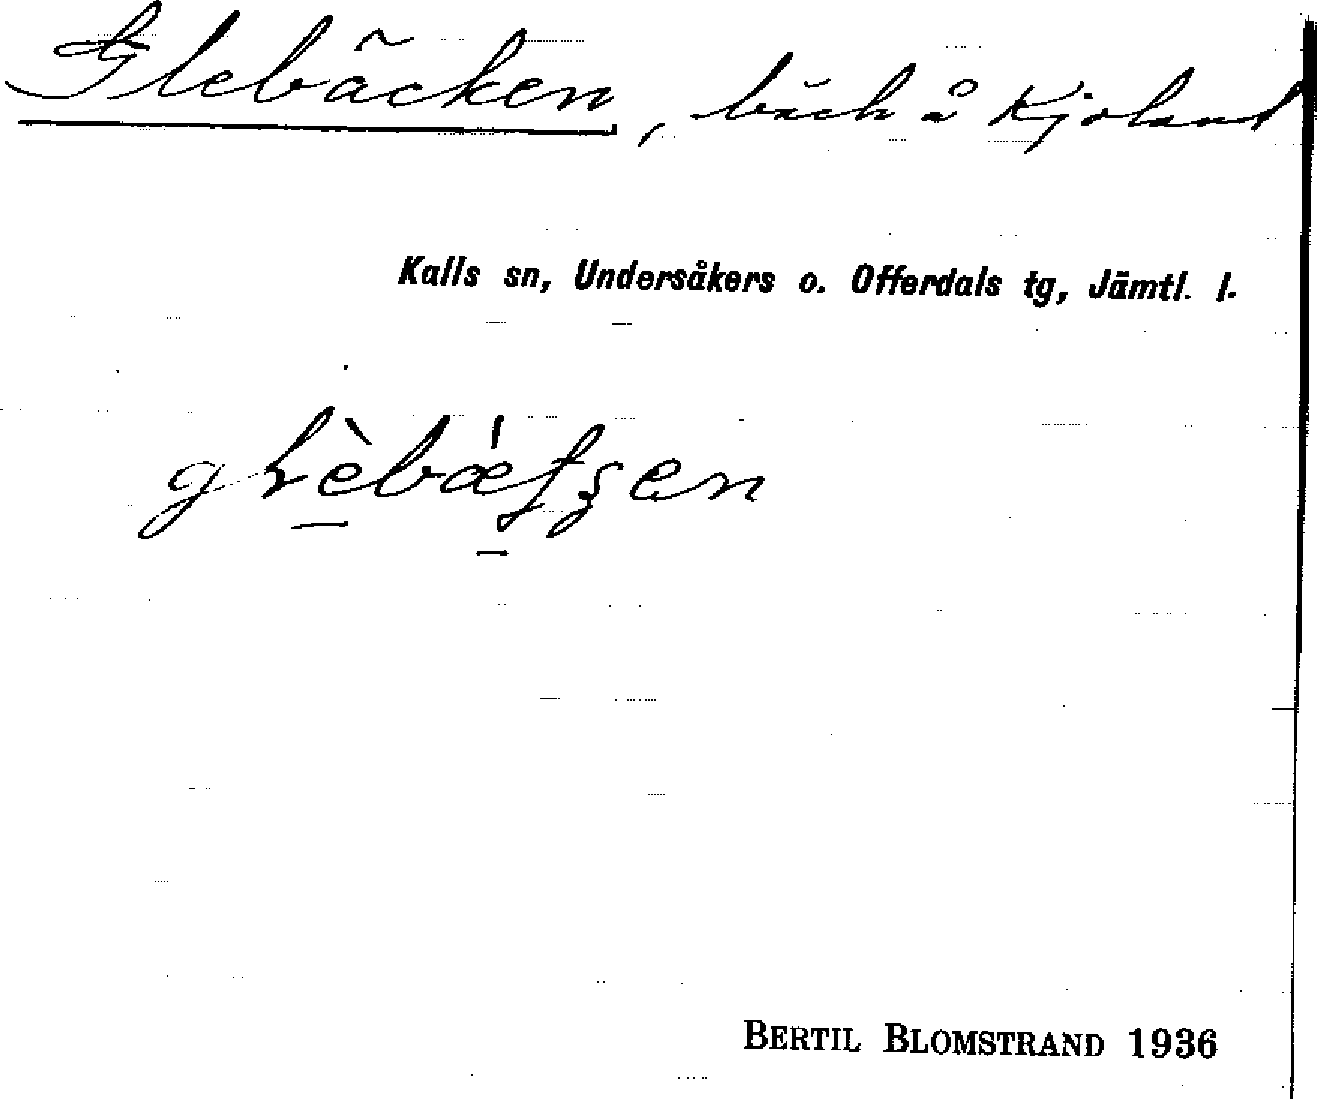 Glebäcken, bäck å Kjoland
Kalls sn, Undersåkers o. Offerdals tg, Jämtl. l.
BERTIL BLOMSTRAND 1936